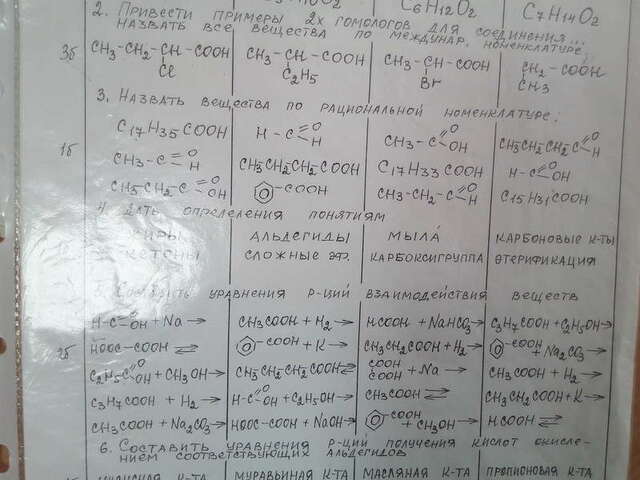 C6H12O2 C7H14O2
2. Привести примеры 2х гомологов для соединения...
Назвать все вещества по междунар. номенклатуре.
3б CH3-CH2-CH-COOH CH3-CH-COOH CH3-CH-COOH CH2-COOH
Cl C2H5 Br CH3
3. Назвать вещества по рациональной номенклатуре:
1б C17H35COOH H-C=O H CH3-C=O OH CH3CH2CH2C=O H
CH3-C=O H CH3CH2CH2COOH C17H33COOH H-C=O OH
CH3CH2C=O OH -COOH CH3-CH2-C=O H C15H31COOH
4. Дать определения понятиям
жиры альдегиды мыла карбоновые к-ты
кетоны сложные эф. карбоксигруппа этерификация
5. Составить уравнения р-ций взаимодействия веществ
H-C=O OH + Na → CH3COOH + H2 → HCOOH + NaHCO3 → C3H7COOH + C2H5OH →
2б HOOC-COOH ⇄ -COOH + K → CH3CH2COOH + H2 → -COOH + Na2CO3 →
C2H5-C=O OH + CH3OH → CH3CH2CH2COOH ⇄ COOH COOH + Na → CH3COOH + H2 →
C3H7COOH + H2 → H-C=O OH + C2H5OH → CH3COOH ⇄ CH3CH2COOH + K →
CH3COOH + Na2CO3 → HOOC-COOH + NaOH → -COOH + CH3OH → HCOOH ⇄
6. Составить уравнения р-ций получения кислот окисле-
нием соответствующих альдегидов
муравьиная к-та масляная к-та пропионовая к-та